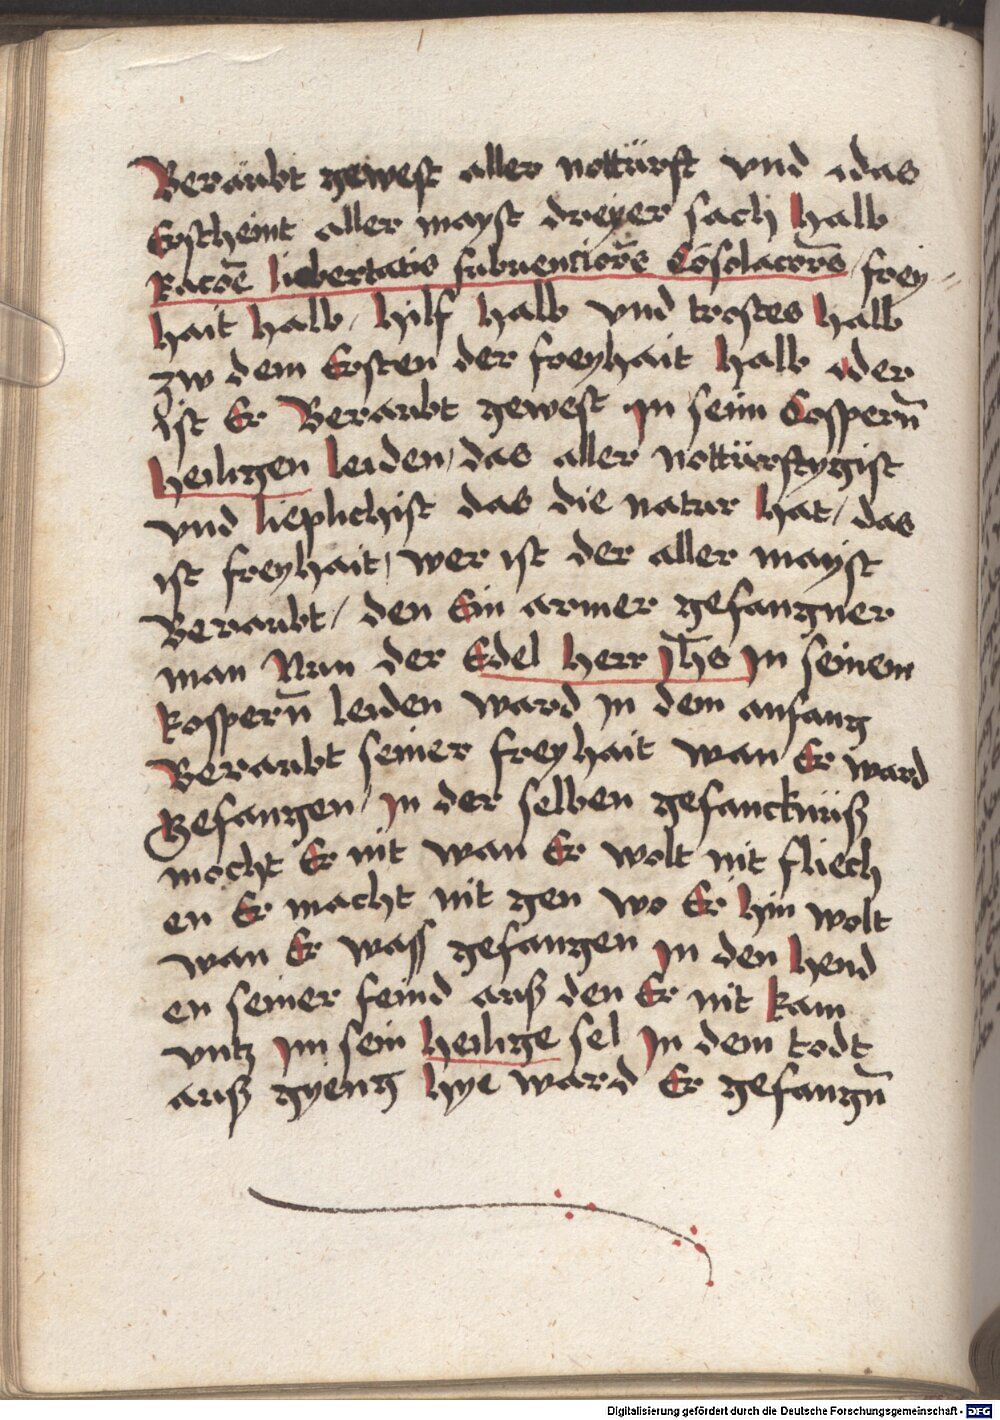 Beraubt gewest aller nottürft vnd das
Erscheint aller mayst dreyer sach halb
Racōe liebertatis subuencionēs Cōsolaconēs / frey
hait halb / hilf halb vnd trostes halb
zw dem Ersten der freyhait halb oder
Ist Er Beraubt gewest In seim Cosperñ
heiligen leiden / das aller nottürftygist
vnd lieplichist das die natur hat / das
ist freyhait / wer ist der aller mayst
Beraubt / den Ein armer gefangner
man Nun der Edel herr Jhs In seinem
kosperñ leiden ward In dem anfang
Beraubt seiner freyhait wan Er ward
Gefangen / In der selben gefancknüß
mocht Er nit wan Er wolt nit fliech
en Er macht nit gen wo Er hin wolt
wan Er wass gefangen In den hend
en seiner feind auß den Er nit kam
vntz Im sein heilige sel In dem todt
auß gyeng hye ward Er gefangñ
Digitalisierung gefördert durch die Deutsche Forschungsgemeinschaft - DFG